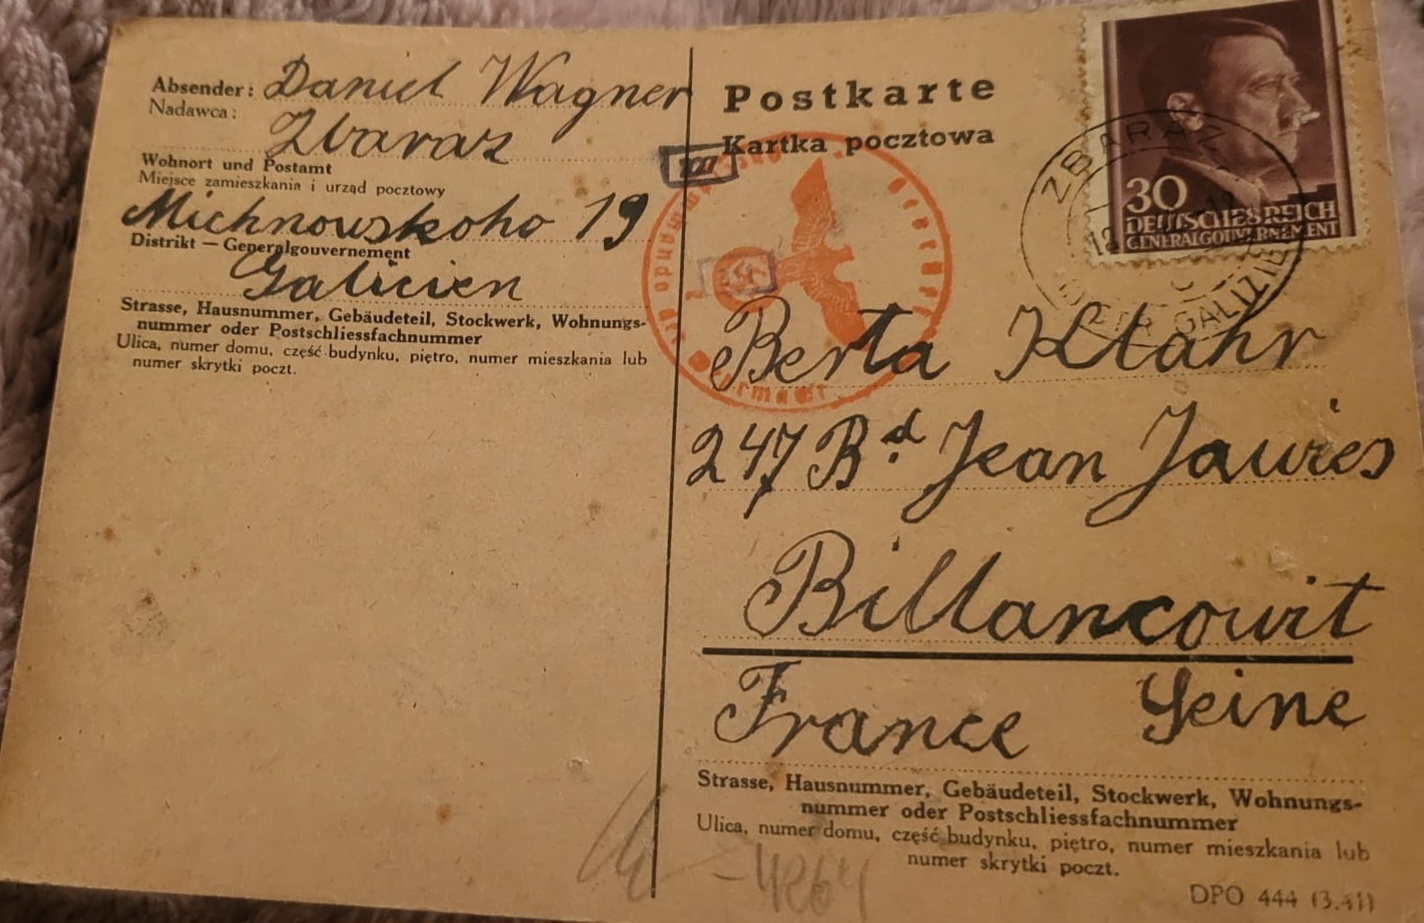 Absender: Daniel Wagner
Nadawca:
Zbaraz
Wohnort und Postamt
Miejsce zamieszkania i urząd pocztowy
Michnowskoho 19
Distrikt — Generalgouvernement
Galicien
Strasse, Hausnummer, Gebäudeteil, Stockwerk, Wohnungs-
nummer oder Postschliessfachnummer
Ulica, numer domu, część budynku, piętro, numer mieszkania lub
numer skrytki poczt.
Postkarte
Kartka pocztowa
30
DEUTSCHES REICH
GENERALGOUVERNEMENT
ZBARAZ
GALIZIEN
Berta Klahr
247 Bd. Jean Jaurès
Billancourt
France Seine
Strasse, Hausnummer, Gebäudeteil, Stockwerk, Wohnungs-
nummer oder Postschliessfachnummer
Ulica, numer domu, część budynku, piętro, numer mieszkania lub
numer skrytki poczt.
DPO 444 (3.41)